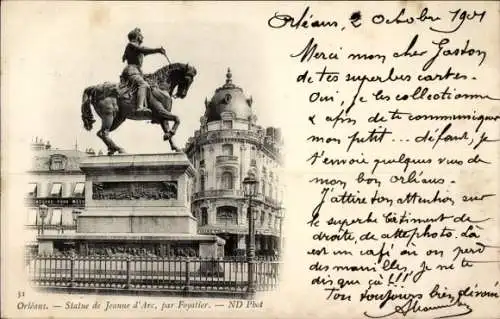 Orléans, 2 octobre 1901
Merci mon cher Gaston
de tes superbes cartes.
Oui, je les collectionne
& afin de te communiquer
mon petit ... défaut, je
t'envoie quelques vues de
mon bon Orléans.
J'attire ton attention sur
le superbe bâtiment de
droite, de cette photo. Là
est un café où on perd
des manilles, je ne te
dis que ça !
Ton toujours bien dévoué
31
Orléans. — Statue de Jeanne d'Arc, par Foyatier. — ND Phot